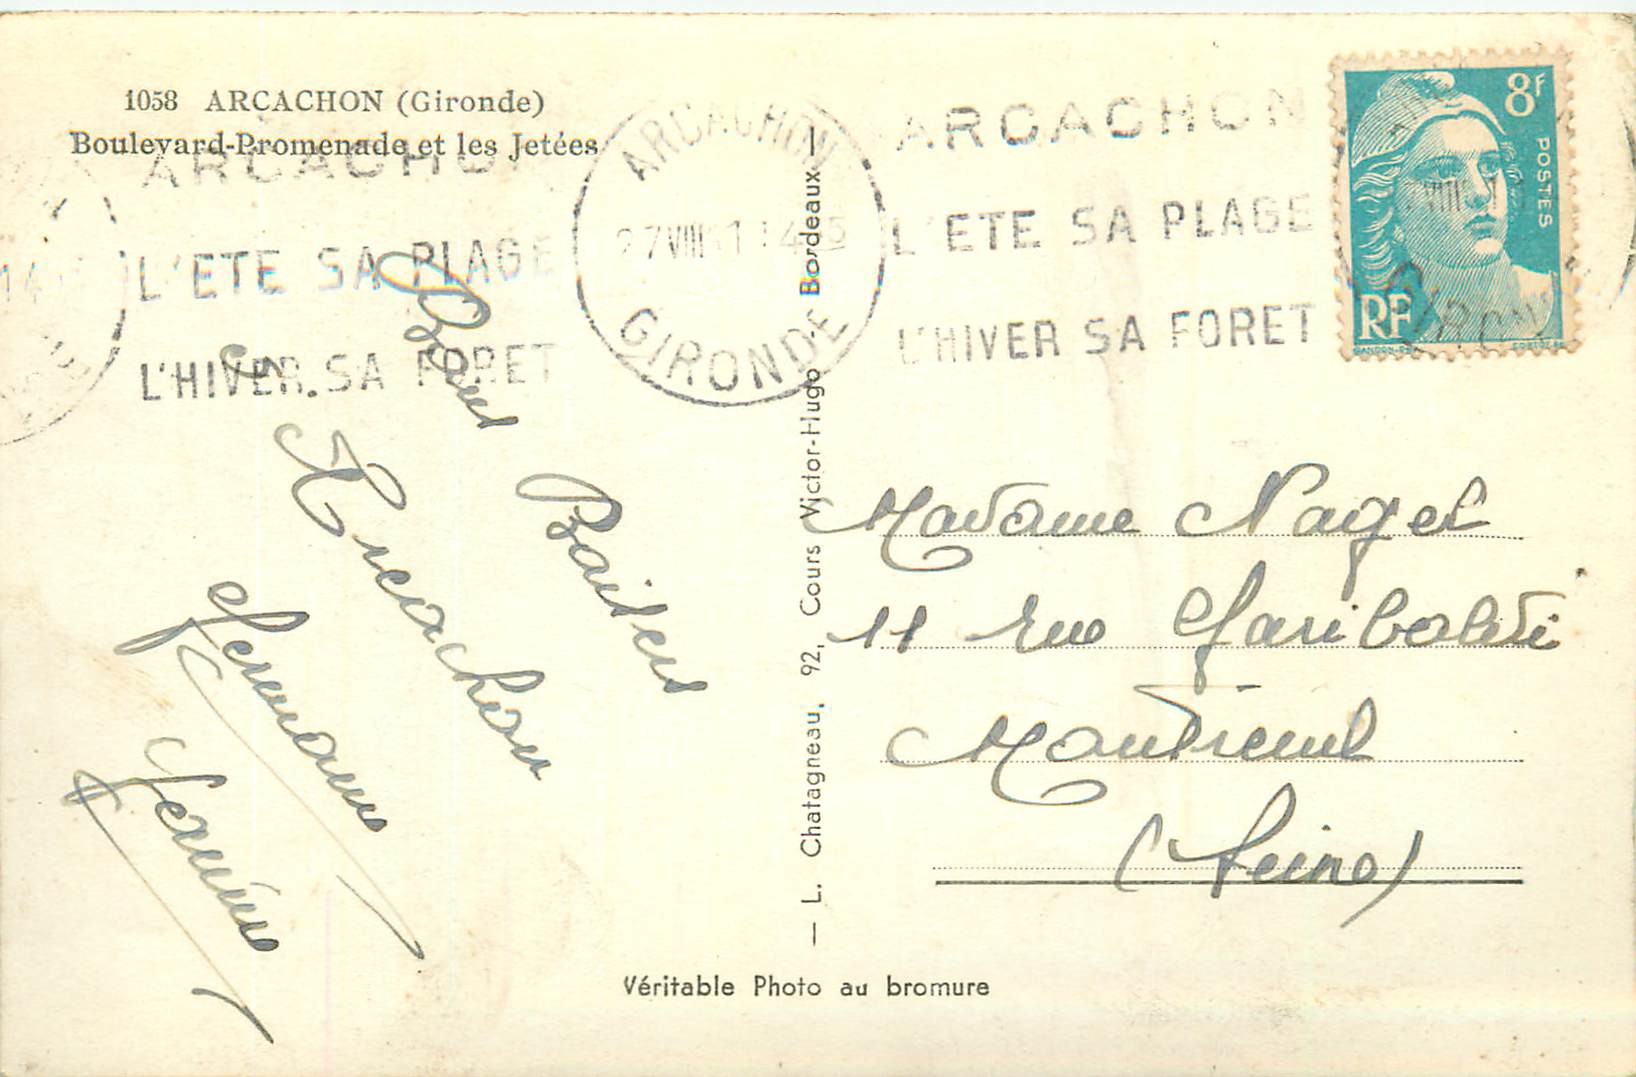 1058 ARCACHON (Gironde)
Boulevard-Promenade et les Jetées
ARCACHON
L'ETE SA PLAGE
L'HIVER SA FORET
ARCACHON
27 VIII 14
GIRONDE
ARCACHON
L'ETE SA PLAGE
L'HIVER SA FORET
8F
POSTES
RF
GANDON
Bons Baisers
d'Arcachon
Germaine
— L. Chatagneau, 92, Cours Victor-Hugo — Bordeaux —
Madame Naget
11 rue Garibaldi
Montreuil
(Seine)
Véritable Photo au bromure